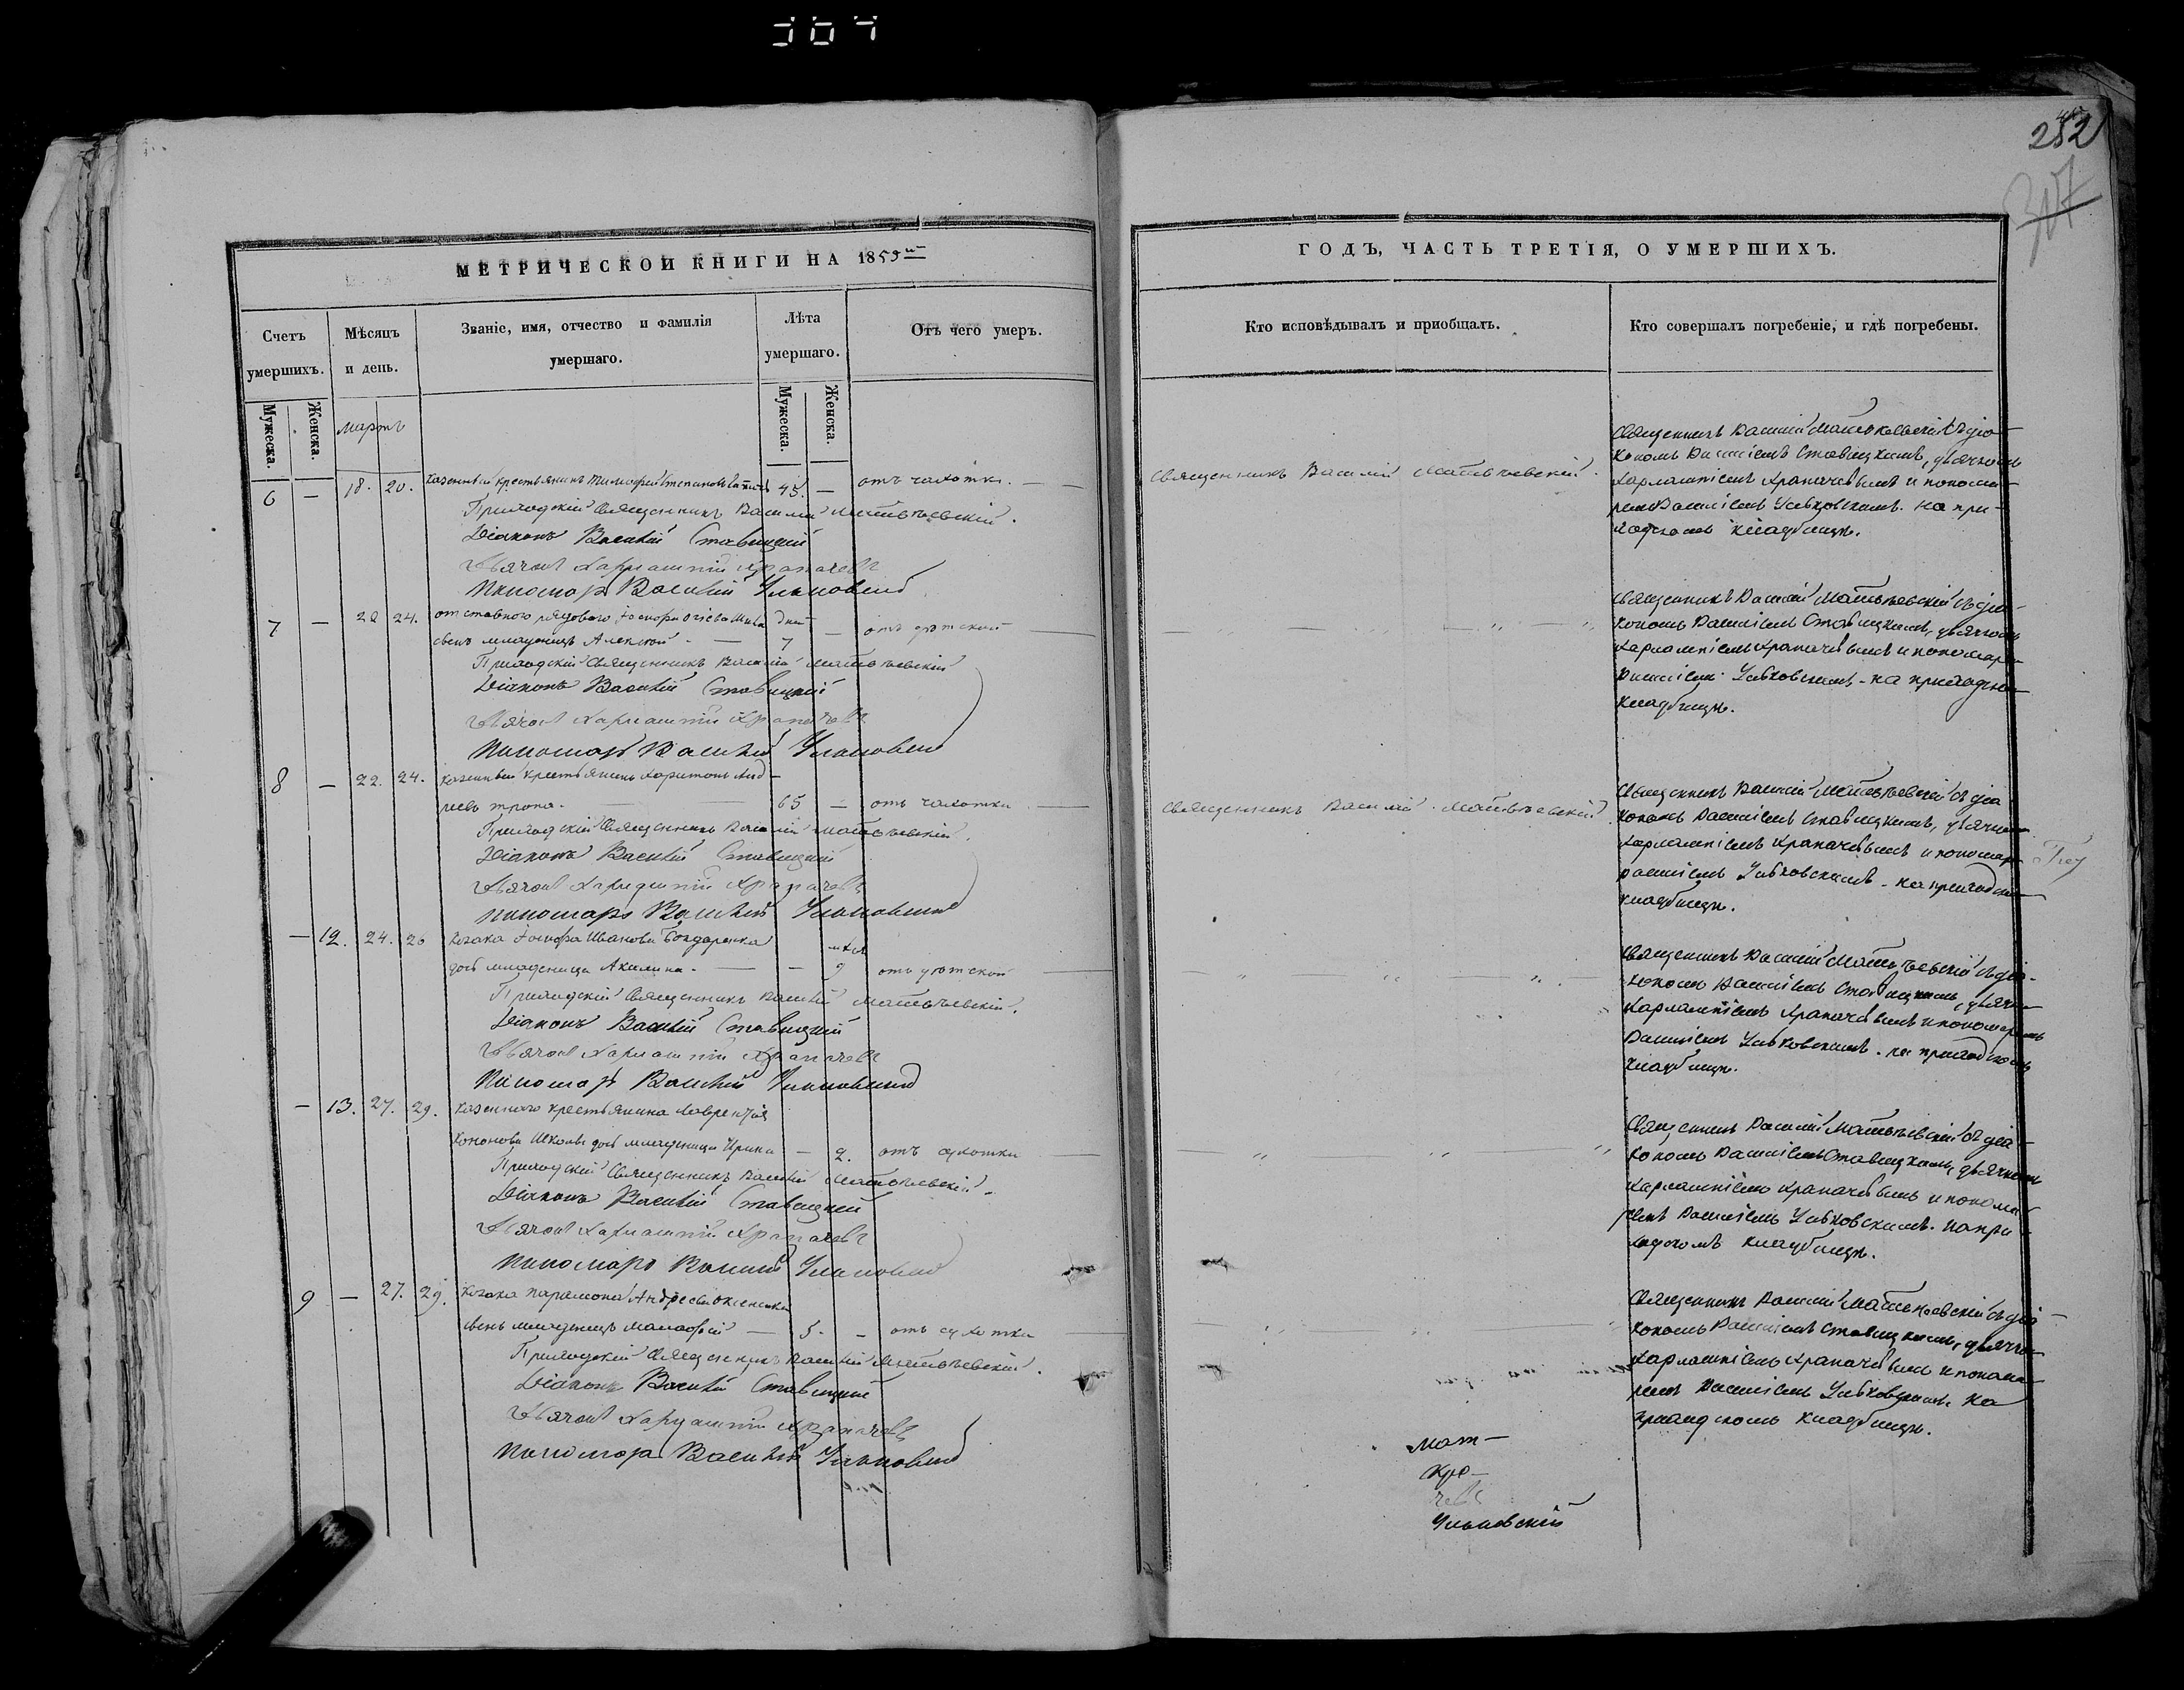 252
307
МЕТРИЧЕСКОЙ КНИГИ НА 1859
Счетъ умершихъ.
Мѣсяцъ и день.
Званіе, имя, отчество и фамилія умершаго.
Лѣта умершаго.
Отъ чего умеръ.
Мужеска.
Женска.
Мужеска.
Женска.
мартъ
6 — 18. 20. казенный крестьянинъ Тимофей Степановъ 45. — отъ чахотки.
Приходскій Священникъ Василій Матвѣевскій.
Діаконъ Василій Ставицкій
Дьячокъ Харлампій Храпачевъ
Пономарь Василій
7 — 22 24. отставного рядового Іосифа дней
сынъ младенецъ Алексей — 7 — отъ дѣтской
Приходскій Священникъ Василій Матвѣевскій
Діаконъ Василій Ставицкій
Дьячокъ Харлампій Храпачевъ
Пономарь Василій
8 — 22. 24. казенный крестьянинъ Харитонъ Анд-
реевъ 65 — отъ чахотки
Приходскій Священникъ Василій Матвѣевскій.
Діаконъ Василій Ставицкій
Дьячокъ Харлампій Храпачевъ
Пономарь Василій
— 12. 24. 26 Козака Іосифа Иванова Бондаренка
дочь младеница Акилина. — — 9 отъ дѣтской
Приходскій Священникъ Василій Матвѣевскій.
Діаконъ Василій Ставицкій
Дьячокъ Харлампій Храпачевъ
Пономарь Василій
— 13. 27. 29. казенного крестьянина Лаврентія
Кононова дочь младеница Ирина — 2. отъ сухотки
Приходскій Священникъ Василій Матвѣевскій.
Діаконъ Василій Ставицкій
Дьячокъ Харлампій Храпачевъ
Пономарь Василій
9 — 27. 29. Козака Парамона Андреева
сынъ младенецъ — 5. — отъ сухотки
Приходскій Священникъ Василій Матвѣевскій.
Діаконъ Василій Ставицкій
Дьячокъ Харлампій Храпачевъ
Пономарь Василій
ГОДЪ, ЧАСТЬ ТРЕТІЯ, О УМЕРШИХЪ.
Кто исповѣдывалъ и пріобщалъ.
Кто совершалъ погребеніе, и гдѣ погребены.
Священникъ Василій Матвѣевскій.
Священникъ Василій Матвѣевскій съ діа-
кономъ Василіемъ Ставицкимъ, дьячкомъ
Харлампіемъ Храпачевымъ и понома-
ремъ Василіемъ на при-
ходскомъ кладбищѣ.
Священникъ Василій Матвѣевскій съ діа-
кономъ Василіемъ Ставицкимъ, дьячкомъ
Харлампіемъ Храпачевымъ и пономаремъ
Василіемъ на приходскомъ
кладбищѣ.
Священникъ Василій Матвѣевскій
Священникъ Василій Матвѣевскій съ діа-
кономъ Василіемъ Ставицкимъ, дьячкомъ
Харлампіемъ Храпачевымъ и пономаремъ
Василіемъ на приходскомъ
кладбищѣ.
Священникъ Василій Матвѣевскій съ діа-
кономъ Василіемъ Ставицкимъ, дьячкомъ
Харлампіемъ Храпачевымъ и пономаремъ
Василіемъ на приходскомъ
кладбищѣ.
Священникъ Василій Матвѣевскій съ діа-
кономъ Василіемъ Ставицкимъ, дьячкомъ
Харлампіемъ Храпачевымъ и понома-
ремъ Василіемъ на при-
ходскомъ кладбищѣ.
Священникъ Василій Матвѣевскій съ діа-
кономъ Василіемъ Ставицкимъ, дьячкомъ
Харлампіемъ Храпачевымъ и понома-
ремъ Василіемъ на
приходскомъ кладбищѣ.
Мат-
чевъ